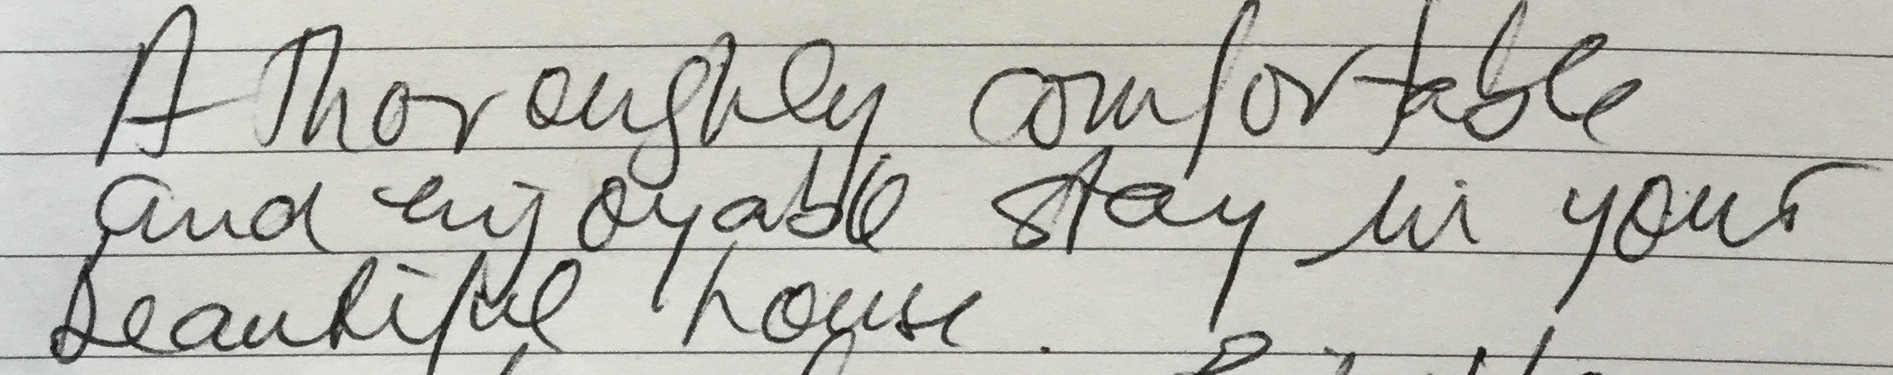 A thoroughly comfortable
and enjoyable stay in your
beautiful house.